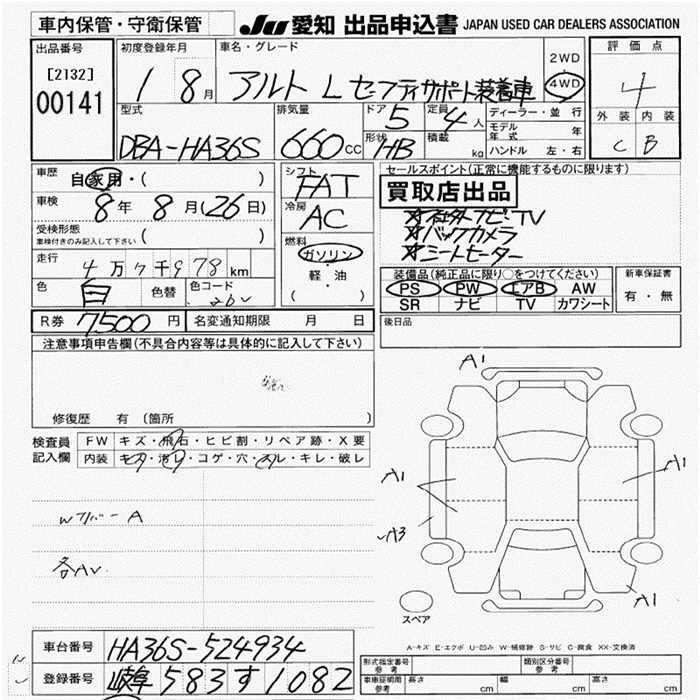 車内保管・守衛保管
JU 愛知 出品申込書 JAPAN USED CAR DEALERS ASSOCIATION
出品番号
[2132]
00141
初度登録年月
1 8月
車名・グレード
アルト L セーフティサポート装着車
2WD
4WD
評価点
4
外装 内装
C B
型式
DBA-HA36S
排気量
660cc
ドア 5
定員 4人
形状 HB
積載 kg
ディーラー・並行
モデル年式 年
ハンドル 左・右
車歴
自家用・( )
車検 8年 8月(26日)
受検形態
車検付きのみ記入して下さい ( )
走行 4万7千978km
色 白 色替 色コード 26U
シフト FAT
冷房 AC
燃料
ガソリン
・軽・油
( )
セールスポイント(正常に機能するものに限ります)
買取店出品
☆社外ナビTV
☆バックカメラ
☆シートヒーター
装備品(純正品に限り○をつけてください)
PS PW エアB AW
SR ナビ TV カワシート
新車保証書
有・無
R券 7,500円 名変通知期限 月 日
後日品
注意事項申告欄(不具合内容等は具体的に記入して下さい)
修復歴 有(箇所 )
検査員記入欄
FW キズ・飛石・ヒビ割・リペア跡・X要
内装 キズ・汚レ・コゲ・穴・スレ・キレ・破レ
Wフパー A
各AU
A1
A1
A1
A3
A1
スペア
A-キズ E-エクボ U-凹み W-補修跡 S-サビ C-腐食 XX-交換済
車台番号 HA36S-524934
登録番号 岐阜 583 す 1082
型式指定番号 参考
類別区分番号 参考
車庫証明用 参考 長さ cm 幅 cm 高さ cm